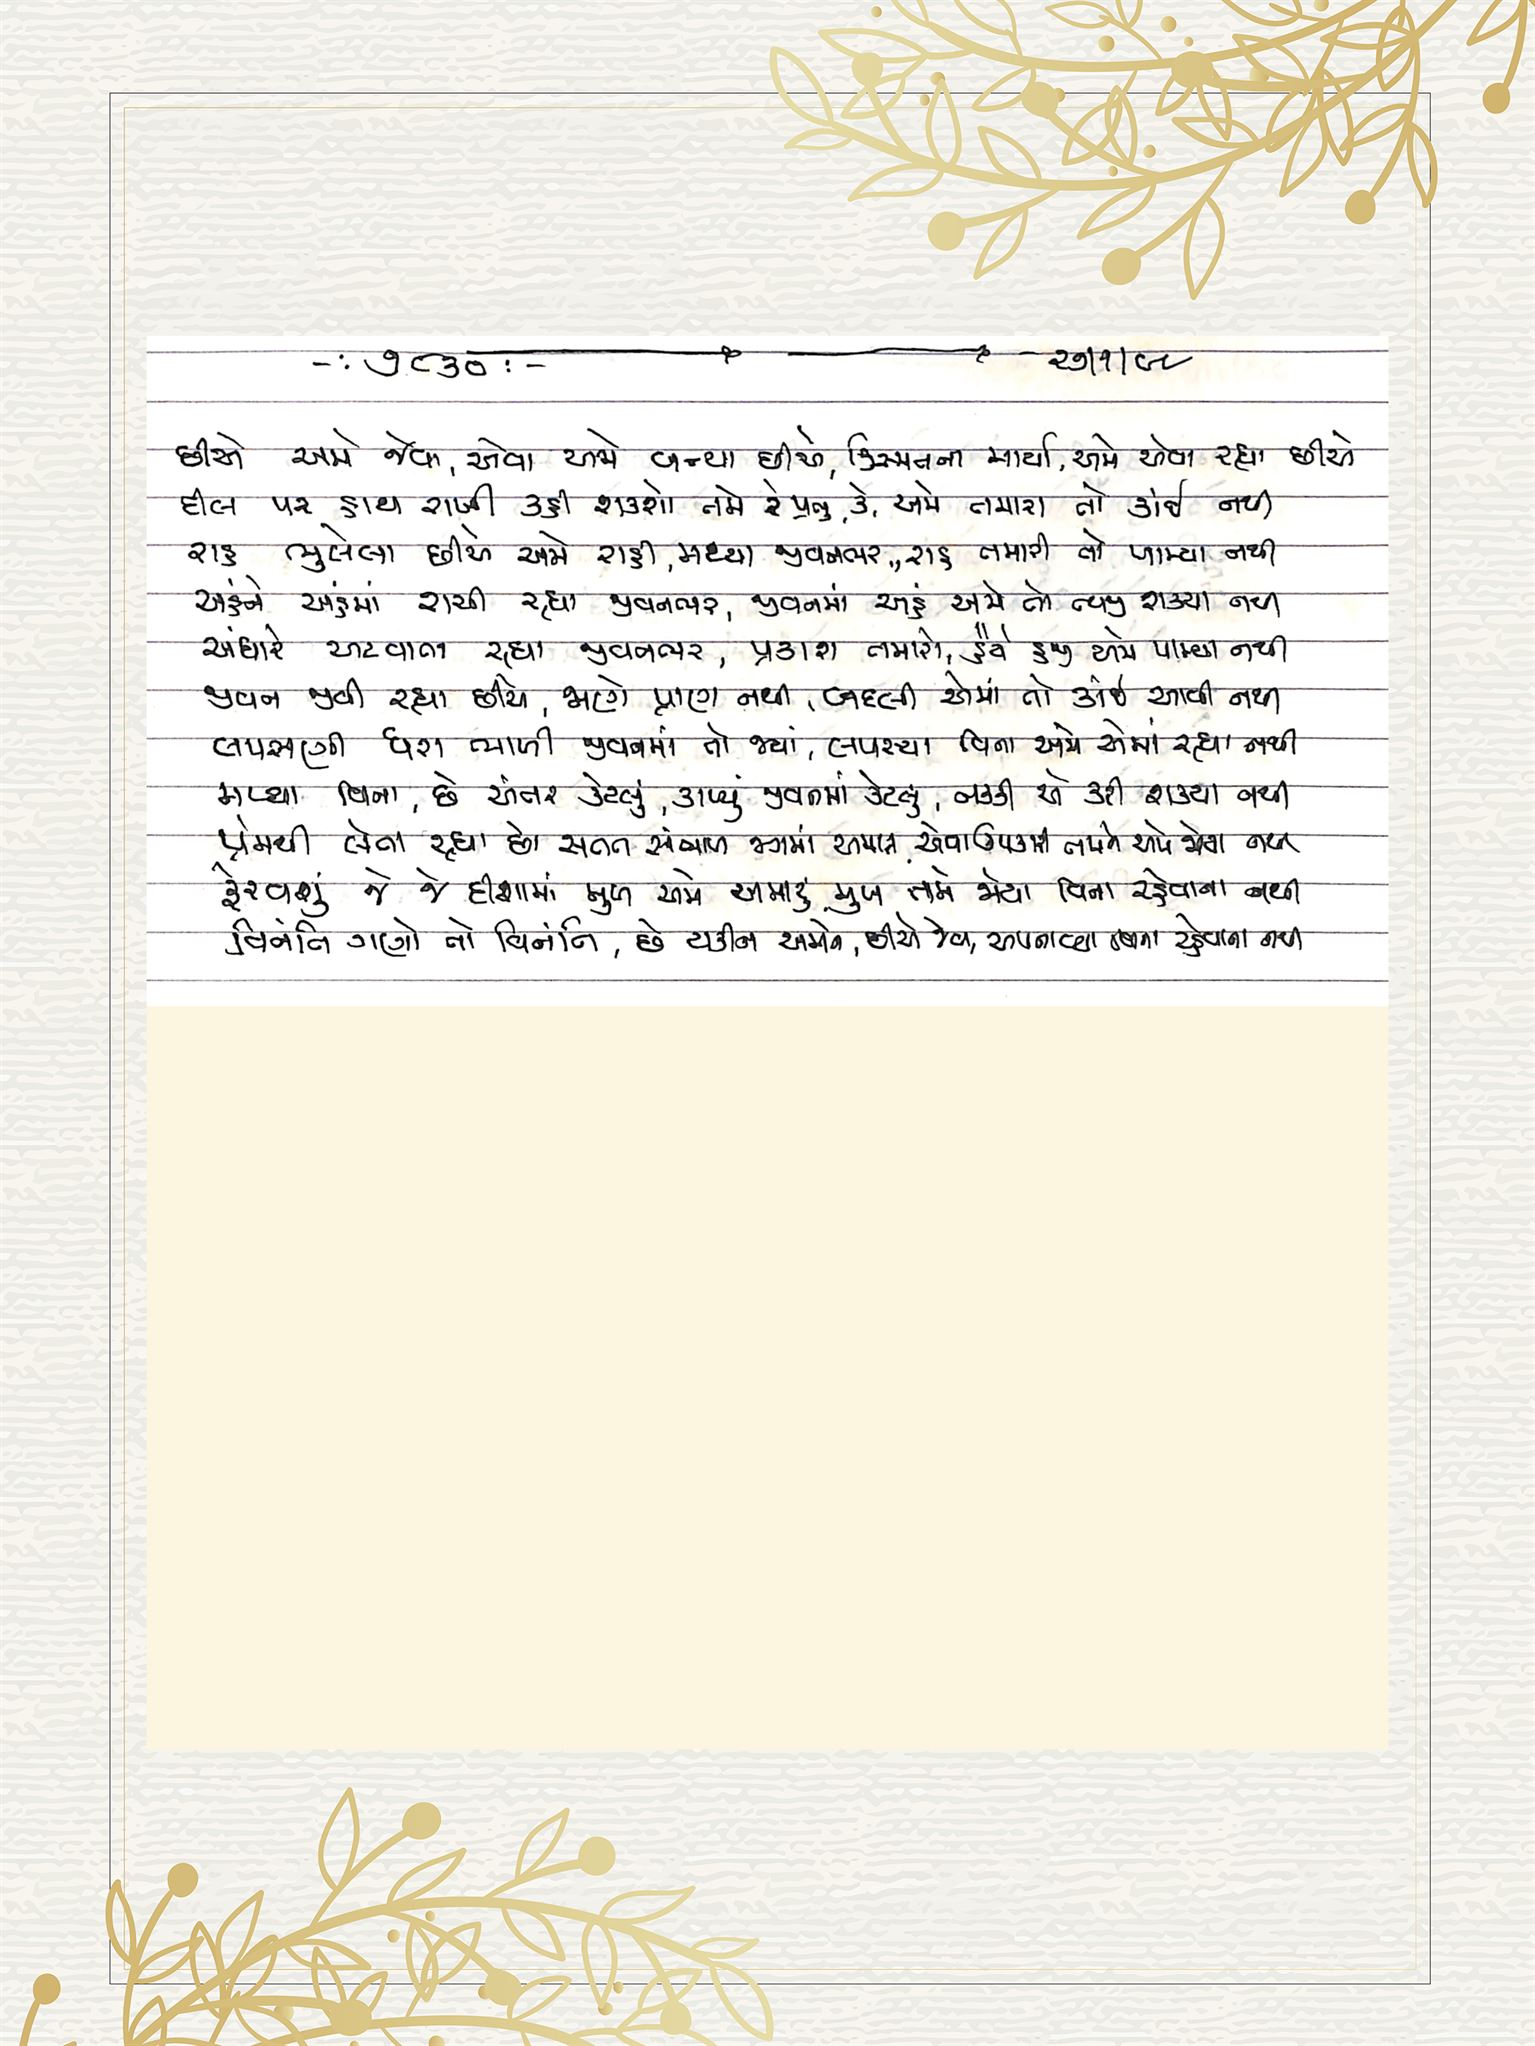 -: ૭૮૩૦ :- ૨૭/૧/૯૯
છીએ અમે જેવા, એવા અમે બન્યા છીએ, કિસ્મતના માર્યા, અમે એવા રહ્યા છીએ
દીલ પર હાથ રાખી કહી શકશો તમે રે પ્રભુ, કે, અમે તમારા તો કાંઈ નથી
રાહ ભુલેલા છીએ અમે રાહી, મથ્યા જીવનભર, રાહ તમારી તો પામ્યા નથી
અહંને અહંમાં રાચી રહ્યા જીવનભર, જીવનમાં અહં અમે તો ત્યજી શક્યા નથી
અંધારે અટવાતા રહ્યા જીવનભર, પ્રકાશ તમારો, હૈયે હજી અમે પામ્યા નથી
જીવન જીવી રહ્યા છીએ, જાણે પ્રાણ નથી, બદલી એમાં તો કાંઈ આવી નથી
લપસણી ધરા ભાળી જીવનમાં તો જ્યાં, લપસ્યા વિના અમે એમાં રહ્યા નથી
માપ્યા વિના, છે અંતર કેટલું, કાપ્યું જીવનમાં કેટલું, નક્કી એ કરી શક્યા નથી
પ્રેમથી લેતા રહ્યા છો સતત સંભાળ જગમાં અમારી, એવા ઉપકારી તમને અમે જોયા નથી
ફેરવશું જે જે દીશામાં મુખ અમે અમારું, મુખ તમે જોયા વિના રહેવાના નથી
વિનંતિ ગણો તો વિનંતિ, છે યકીન અમોને, છીએ જેવા, અપનાવ્યા વિના રહેવાના નથી